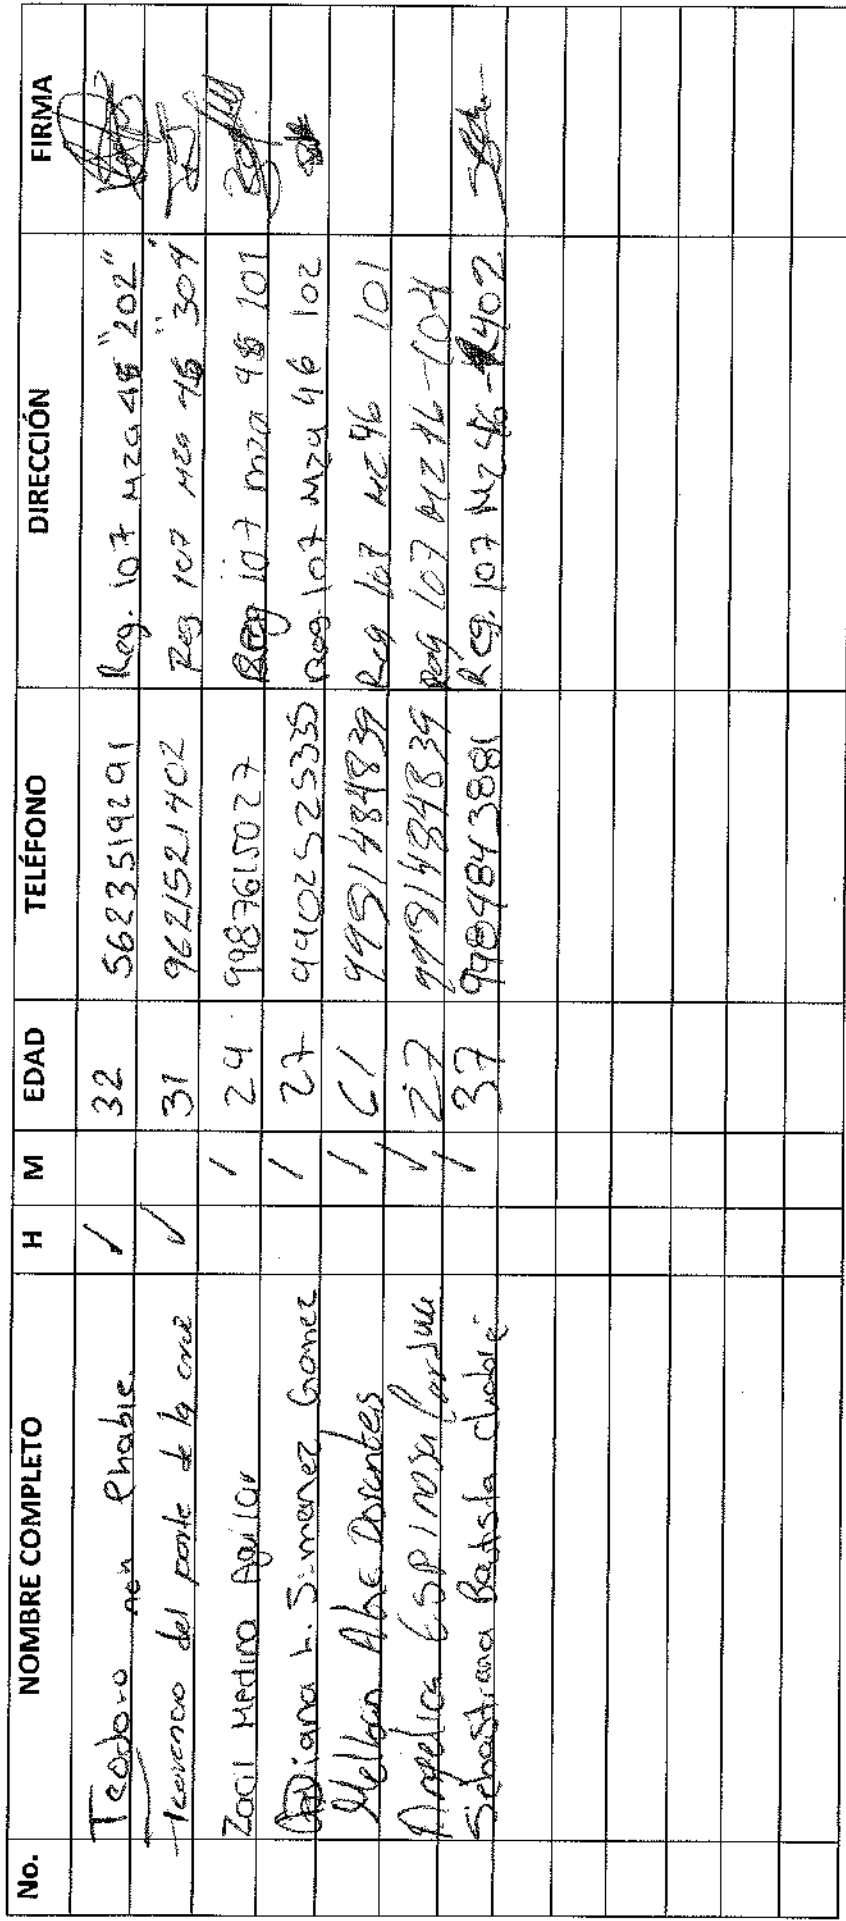 No. NOMBRE COMPLETO H M EDAD TELÉFONO DIRECCIÓN FIRMA
Teodoro Chable ✓ 32 5623519291 Reg. 107 Mza 48 "202"
del ponte de la cruz ✓ 31 9621521402 Reg 107 Mza 48 "304"
Zacil Medina Aguilar / 24 9987615027 Reg 107 mza 48 101
Diana L. Simanez Gomez / 27 9902525335 Reg. 107 Mza 46 102
Dorantes / 61 9981484839 Reg 107 MZ 46 101
Angelica Espinosa ✓ 27 9981484839 Reg 107 MZ 46-104
Sebastiana Bautista Chable / 37 9989843881 Reg. 107 Mz 46-402